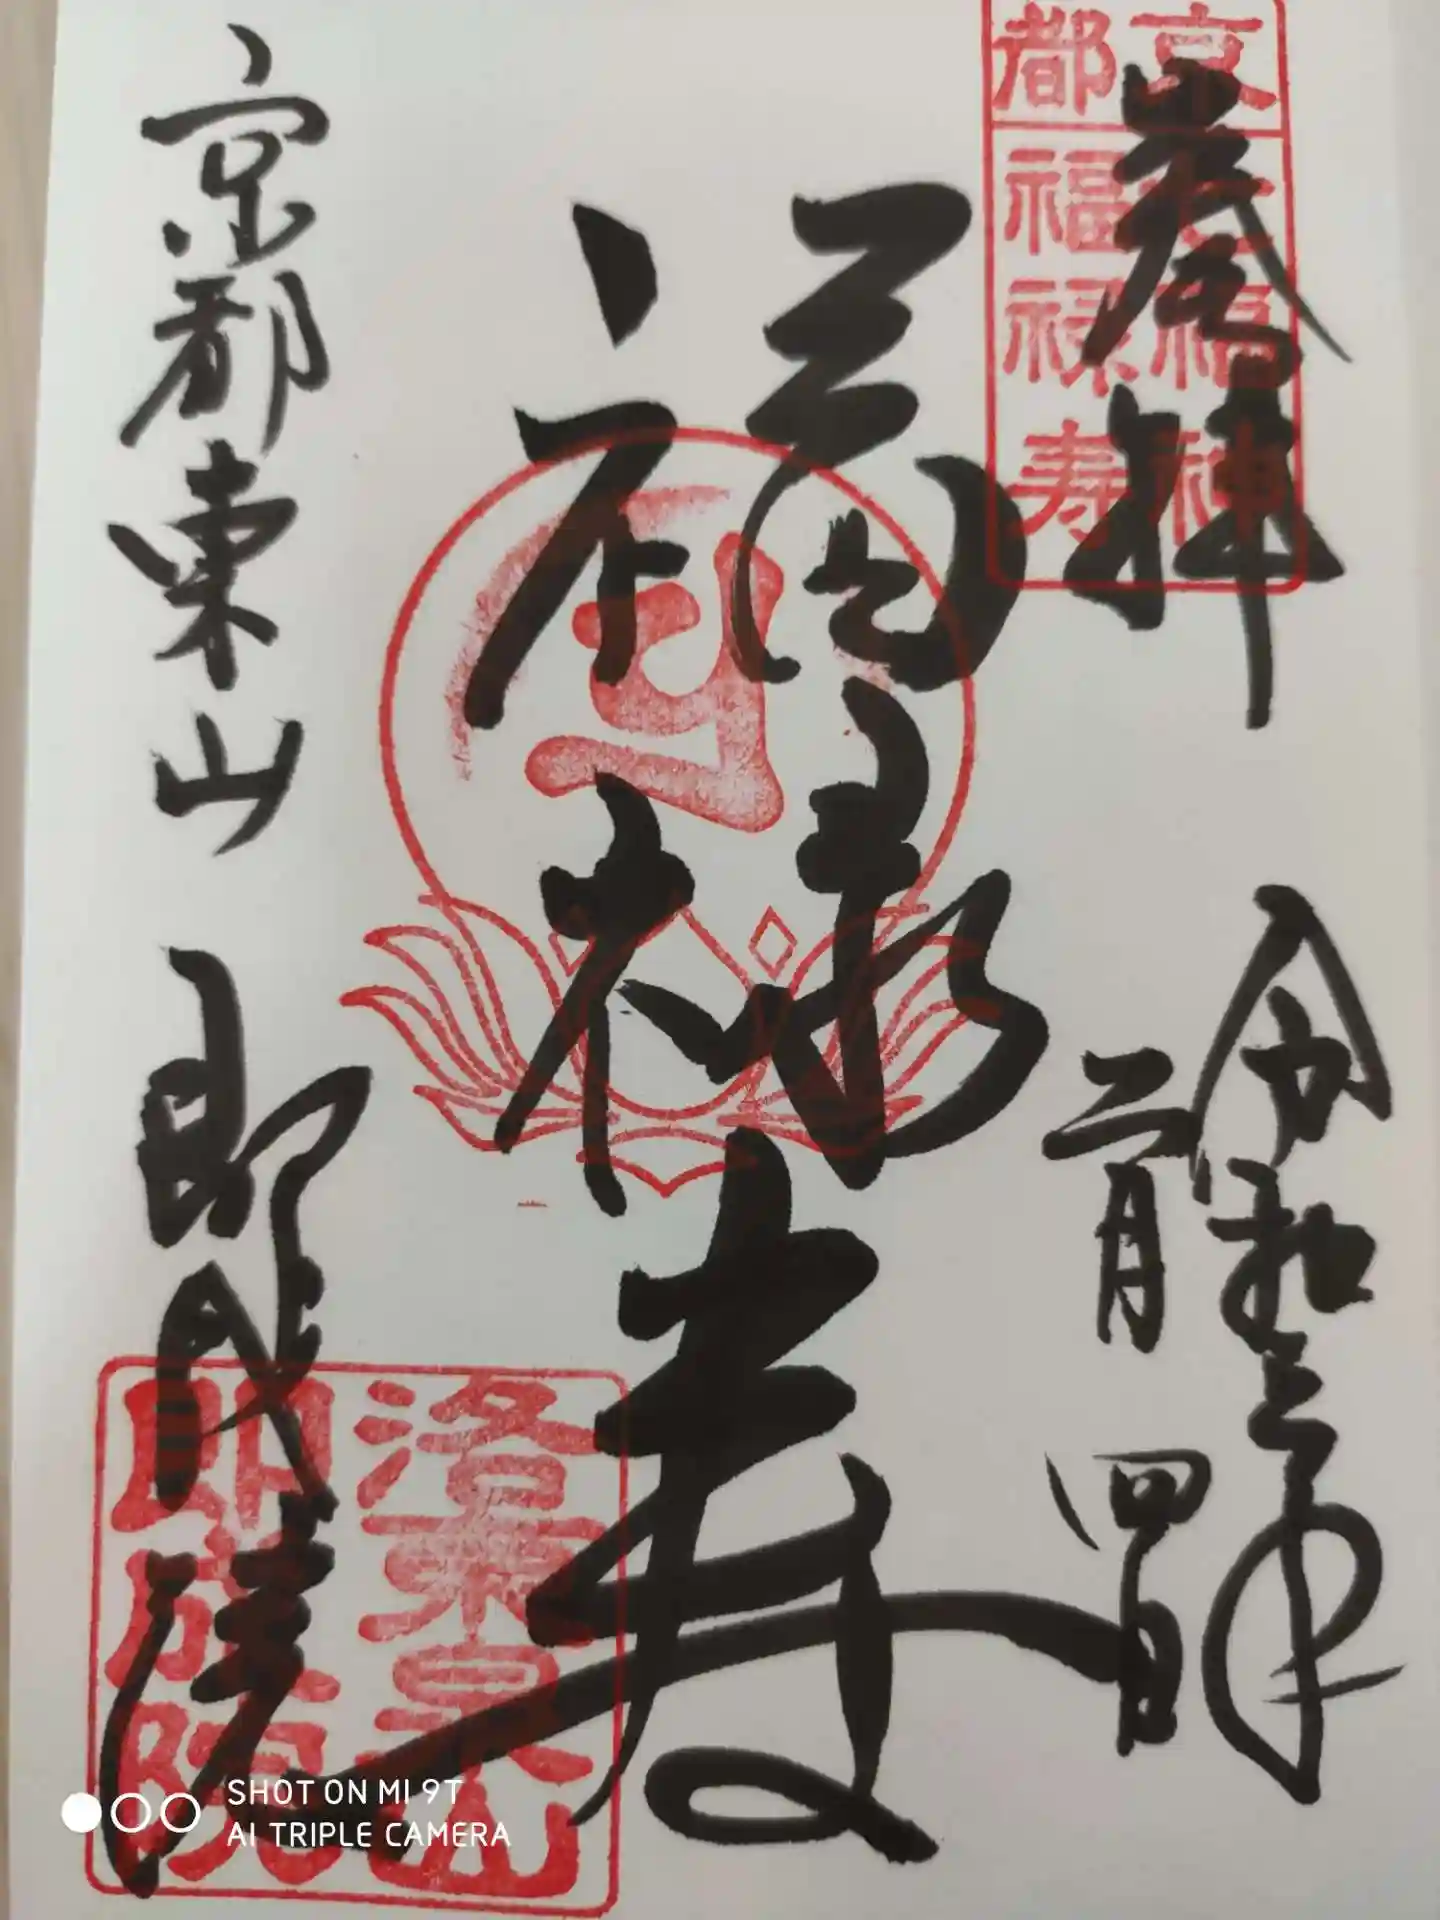 奉拝
京都
七福神
福禄寿
令和三年
二月四日
福禄寿
京都東山
即成院
洛東泉山
即成院
SHOT ON MI 9T
AI TRIPLE CAMERA